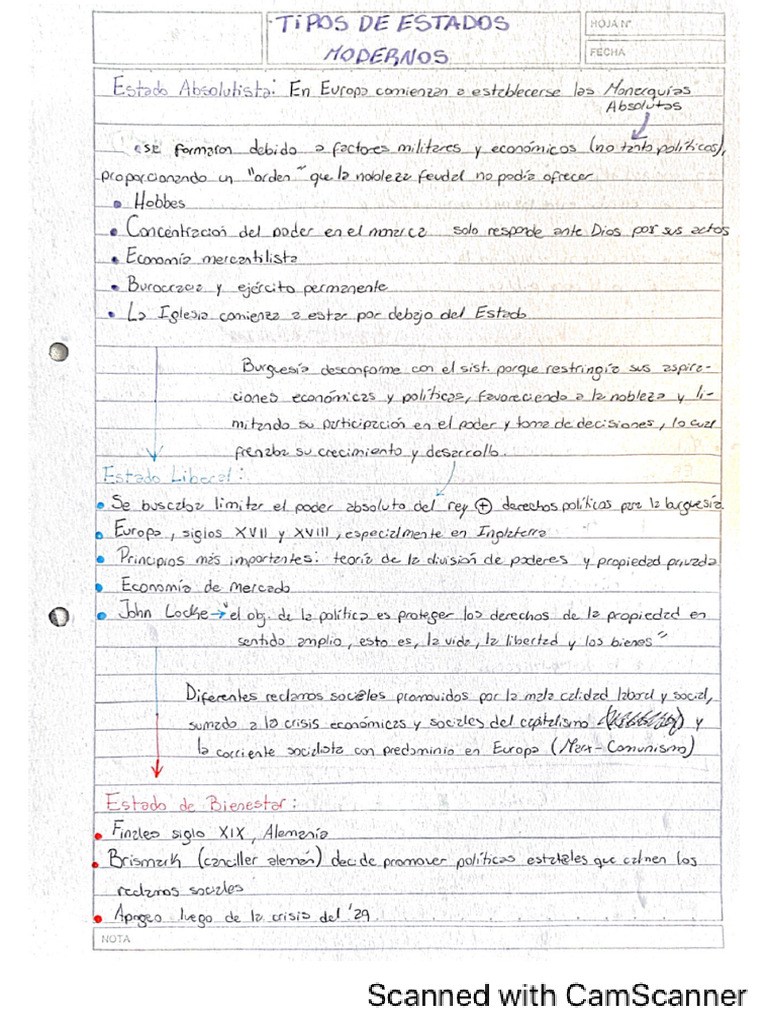 TIPOS DE ESTADOS
MODERNOS
HOJA N°
FECHA
Estado Absolutista: En Europa comienzan a establecerse las Monarquías
Absolutas
se formaron debido a factores militares y económicos (no tanto políticos),
proporcionando un "orden" que la nobleza feudal no podía ofrecer
• Hobbes
• Concentración del poder en el monarca solo responde ante Dios por sus actos
• Economía mercantilista
• Burocracia y ejército permanente
• La Iglesia comienza a estar por debajo del Estado
Burguesía desconforme con el sist. porque restringía sus aspira-
ciones económicas y políticas, favoreciendo a la nobleza y li-
mitando su participación en el poder y toma de decisiones, lo cual
frenaba su crecimiento y desarrollo.
Estado Liberal:
• Se buscaba limitar el poder absoluto del rey ⊕ derechos políticos para la burguesía.
• Europa, siglos XVII y XVIII, especialmente en Inglaterra
• Principios más importantes: teoría de la división de poderes y propiedad privada
• Economía de mercado
• John Locke → "el obj. de la política es proteger los derechos de la propiedad en
sentido amplio, esto es, la vida, la libertad y los bienes"
Diferentes reclamos sociales promovidos por la mala calidad laboral y social,
sumado a la crisis económicas y sociales del capitalismo y
la corriente socialista con predominio en Europa (Marx-Comunismo)
Estado de Bienestar:
• Finales siglo XIX, Alemania
• Brismark (canciller alemán) decide promover políticas estatales que calmen los
reclamos sociales
• Apogeo luego de la crisis del '29
NOTA
Scanned with CamScanner